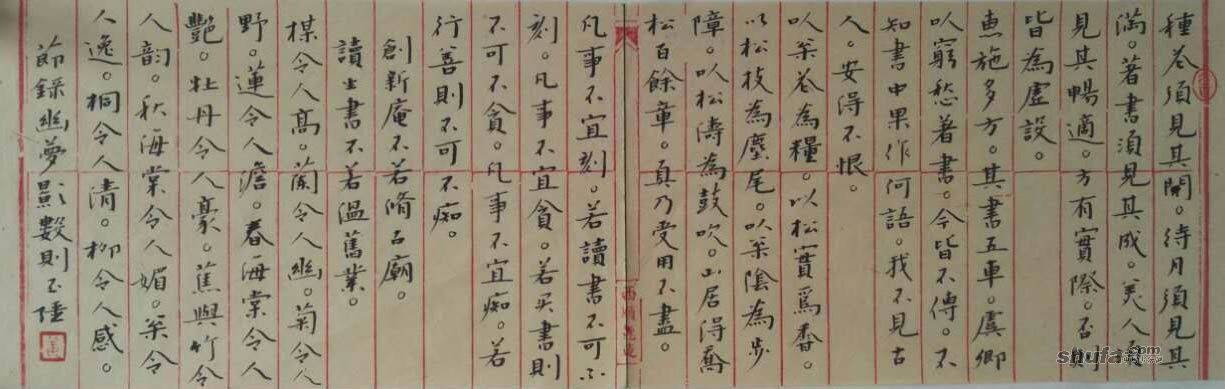 種花須見其開。待月須見其
滿。著書須見其成。美人須
見其暢適。方有實際。否則
皆為虛設。
惠施多方。其書五車。虞卿
以窮愁著書。今皆不傳。不
知書中果作何語。我不見古
人。安得不恨。
以松花為糧。以松實為香。
以松枝為麈尾。以松陰為步
障。以松濤為鼓吹。山居得喬
松百餘章。真乃受用不盡。
凡事不宜刻。若讀書不可不
刻。凡事不宜貪。若買書則
不可不貪。凡事不宜痴。若
行善則不可不痴。
創新庵不若脩古廟。
讀生書不若溫舊業。
楳令人高。蘭令人幽。菊令人
野。蓮令人澹。春海棠令人
艷。牡丹令人豪。蕉與竹令
人韻。秋海棠令人媚。松令
人逸。桐令人清。柳令人感。
節錄幽夢影數則
shufa.com